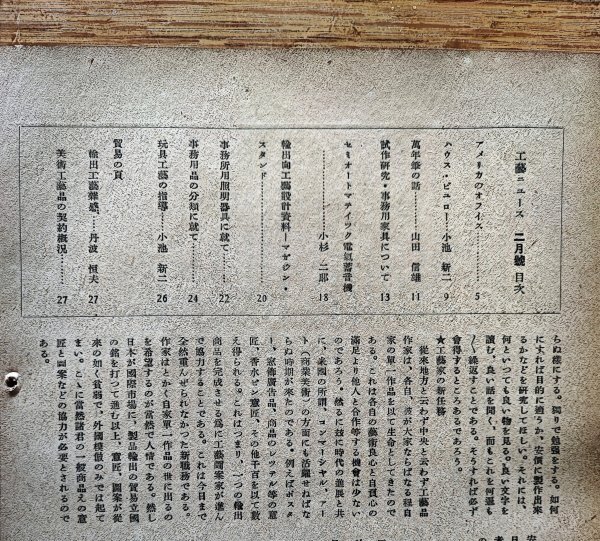 工藝ニュース 二月號 目次
アメリカのオフイス………5
ハウス・ビューロー…小池 新二 9
萬年筆の話………山田 信雄 11
試作研究・事務用家具について 13
セミオートマテイツク電氣蓄音機
………小杉 二郎 18
輸出向工藝設計資料―マガジン・
スタンド………20
事務所用照明器具に就て………22
事務用品の分類に就て………24
玩具工藝の指導…小池 新二 26
貿易の頁
輸出工藝雜感…丹波 恒夫 27
美術工藝品の契約概況………27
らぬ樣にする。獨りで勉強をする。如何
にすれば目的に適うか、安價に製作出來
るかなどを研究してほしい。それには、
何といつても良い物を見る。良い文字を
讀む、良い話を聞く、而もこれを何遍も
〳〵繰返すことである。そうすれば必ず
會得するところあるであろう。
★工藝家の新任務
從來地方と云わず中央と云わず工藝品
作家は、各自、彼が大家ならばなる程自
家の單一作品を以て生命としてきたので
ある。これは各自の藝術良心と自負心の
滿足より他人と合作等する機會は少ない
のであろう。然るに茲に時代の進展と共
に、米國の所謂、コンマーシヤル、アー
ト(商業美術)の方面にも活躍せねばな
らぬ時期が來たのである。例えばポスタ
ー、室飾廣告品、商品のレツテル等の意
匠、香水ビン意匠、その他千百を以て數
え得られる。これはつまり、一つの輸出
商品を完成させる爲に工藝圖案家が進ん
で協力することである。これは今日まで
全然重んぜられなかつた新職務である。
作家はとかく自家單一作品の世に出るの
を希望するのが當然で人情である。然し
日本が國際市場に、製品輸出の貿易立國
の銘を打つて進む以上、意匠、圖案が從
來の如く貧弱で、外國模倣のみでは起て
まい。こゝに當然諸君の一般商品えの意
匠と圖案などの協力が必要とされるので
ある。